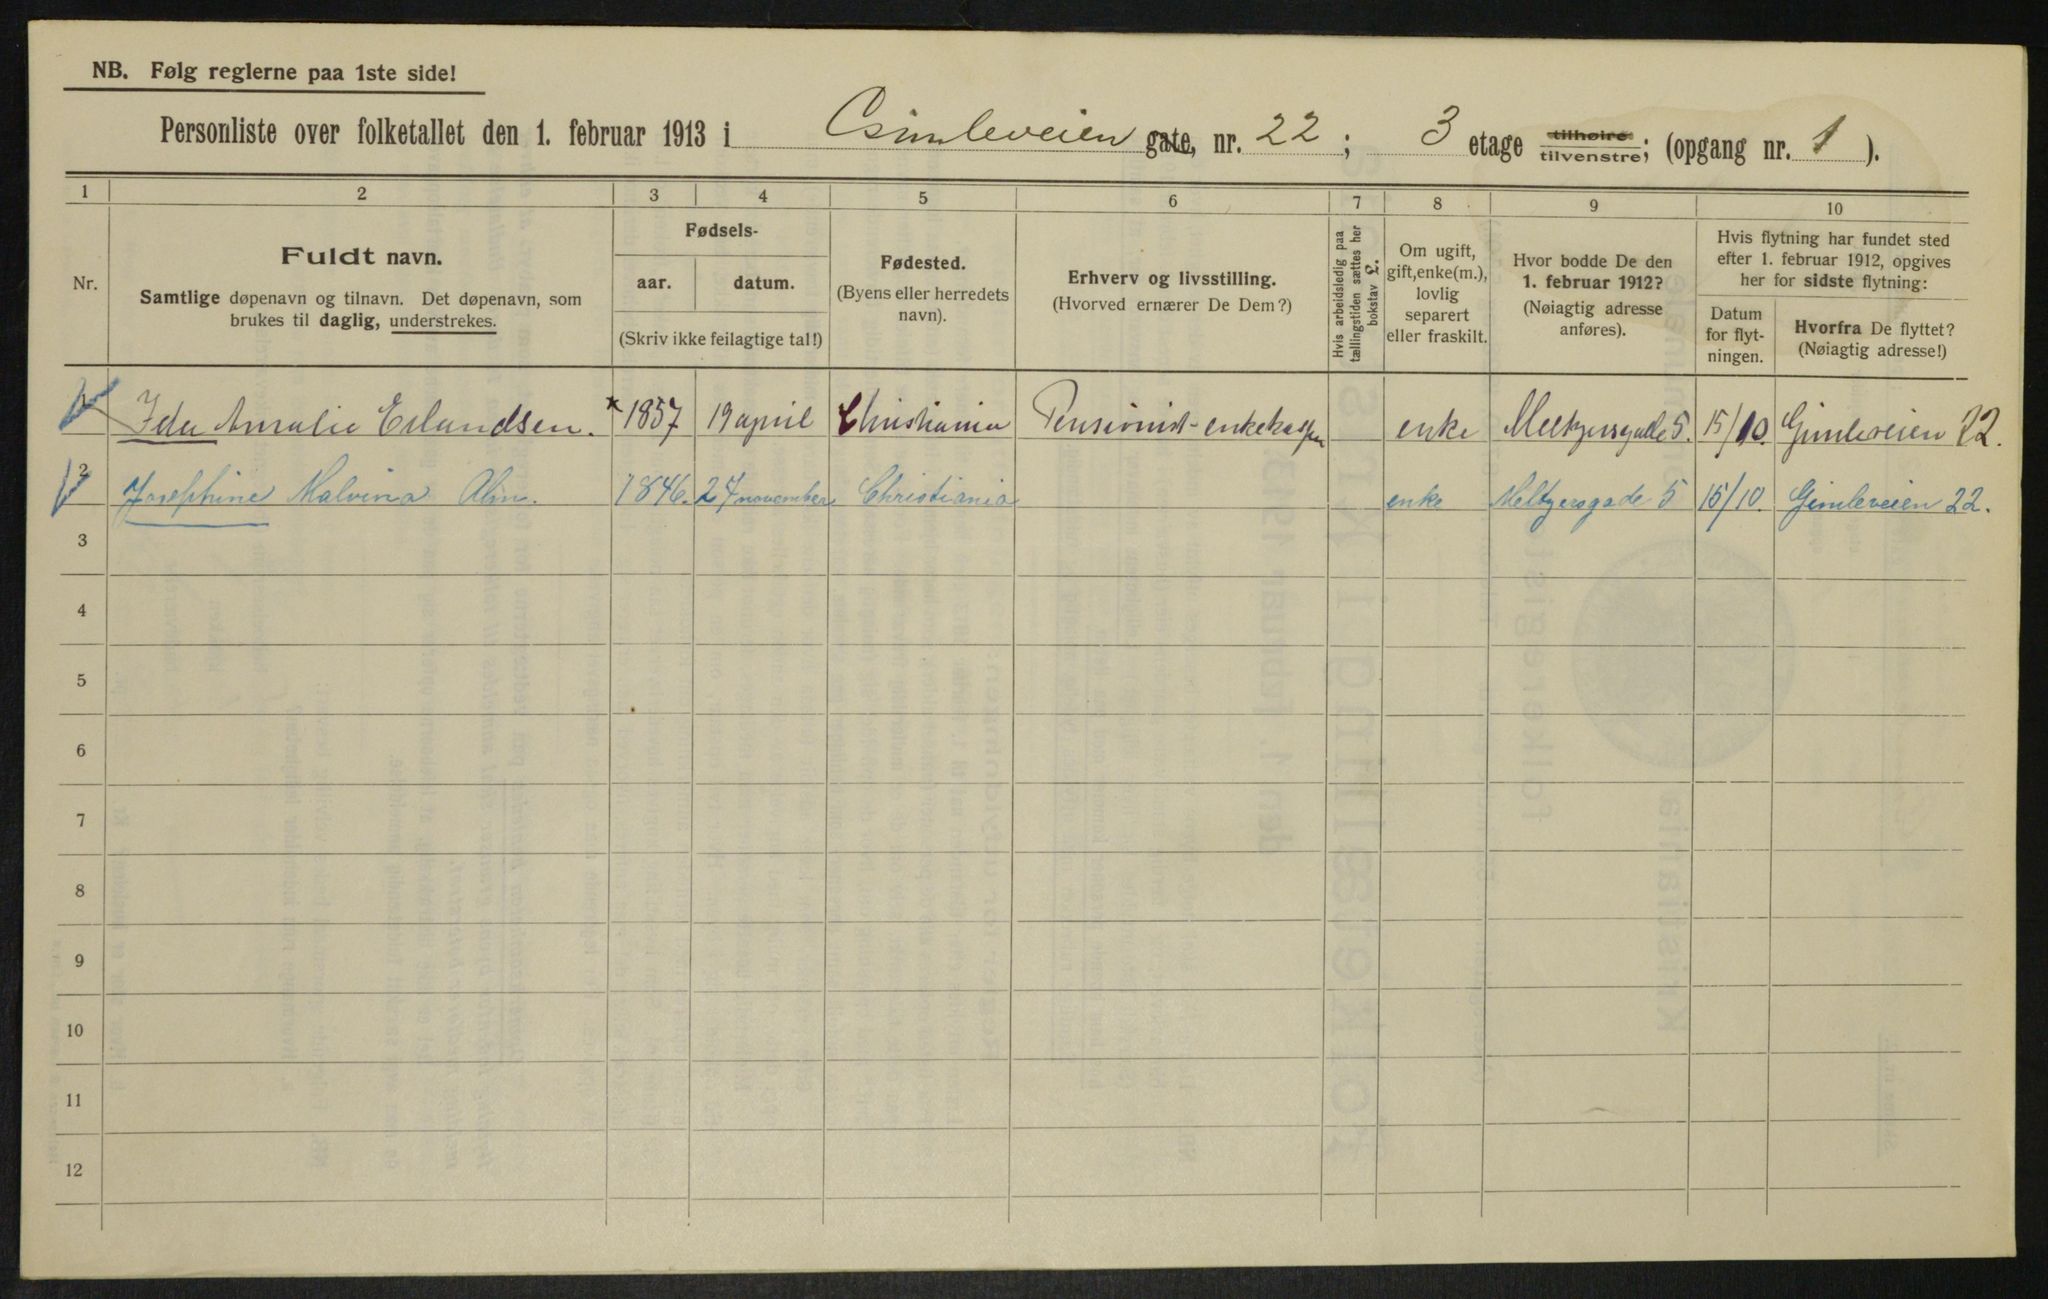 NB. Følg reglerne paa 1ste side!
Personliste over folketallet den 1. februar 1913 i Gimleveien gate, nr. 22 ; 3 etage tilhøire tilvenstre; (opgang nr. 1 ).
1 2 3 4 5 6 7 8 9 10
Nr.
Fuldt navn.
Samtlige døpenavn og tilnavn. Det døpenavn, som
brukes til daglig, understrekes.
Fødsels-
aar. datum.
(Skriv ikke feilagtige tal!)
Fødested.
(Byens eller herredets
navn).
Erhverv og livsstilling.
(Hvorved ernærer De Dem?)
Hvis arbeidsledig paa
tællingstiden sættes her
bokstav L.
Om ugift,
gift, enke(m.),
lovlig
separert
eller fraskilt.
Hvor bodde De den
1. februar 1912?
(Nøiagtig adresse
anføres).
Hvis flytning har fundet sted
efter 1. februar 1912, opgives
her for sidste flytning:
Datum
for flyt-
ningen.
Hvorfra De flyttet?
(Nøiagtig adresse!)
1 Ida Amalie Erlandsen. * 1857 19 april Christiania Pensionist-enkekassen enke Meltzersgade 5. 15/10. Gimleveien 22.
2 Josephine Malvina Alm. 1846. 27 november Christiania enke Meltzersgade 5 15/10. Gimleveien 22.
3
4
5
6
7
8
9
10
11
12